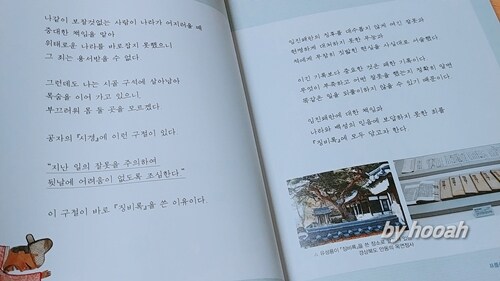 나같이 보잘것없는 사람이 나라가 어지러울 때
중대한 책임을 맡아
위태로운 나라를 바로잡지 못했으니
그 죄는 용서받을 수 없다.
그런데도 나는 시골 구석에 살아남아
목숨을 이어 가고 있으니
부끄러워 몸 둘 곳을 모르겠다.
공자의 『시경』에 이런 구절이 있다.
"지난 일의 잘못을 주의하여
뒷날에 어려움이 없도록 조심한다."
이 구절이 바로 『징비록』을 쓴 이유이다.
임진왜란의 징후를 대수롭지 않게 여긴 잘못과
현명하게 대처하지 못한 무능과
적에게 무참히 짓밟힌 현실을 사실대로 서술했다.
이긴 기록보다 중요한 것은 패한 기록이다.
무엇이 부족하고 어떤 잘못을 했는지 정확히 알면
똑같은 일을 되풀이하지 않을 수 있기 때문이다.
임진왜란에 대한 책임과
나라와 백성의 믿음에 보답하지 못한 죄를
『징비록』에 모두 담고자 한다.
유성룡이 『징비록』을 쓴 장소로
경상북도 안동의 옥연정사
by hooah